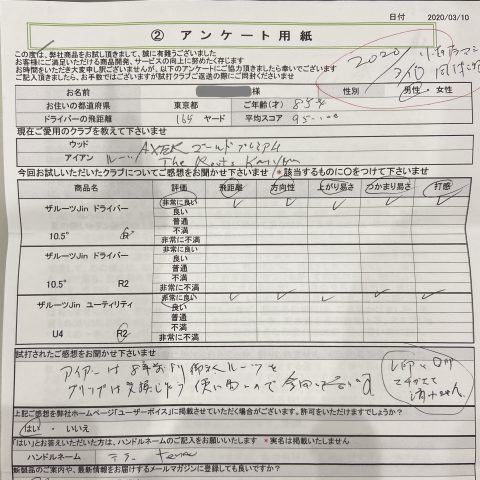 日付 2020/03/10
② アンケート用紙
この度は、弊社商品をお試し頂きまして、誠に有難うございました
お客様にご満足いただける商品開発、サービスの向上に努めたく存じます
お時間をいただき大変申し訳ございませんが、以下のアンケートにご協力頂きましたら幸いでございます
ご記入頂きましたら、お手数ではございますが試打クラブご返送の際にご同封くださいませ
2020
3/10
様 性別 男性・女性
お住いの都道府県 東京都 ご年齢(才) 85才
ドライバーの飛距離 165 ヤード 平均スコア 95~100
現在ご愛用のクラブを教えて下さいませ
ウッド
アイアン ルーツ The Roots
今回お試しいただいたクラブについてご感想をお聞かせ下さいませ *該当するものに〇をつけて下さいませ
商品名 評価 飛距離 方向性 上がり易さ つかまり易さ 打感
ザルーツJin ドライバー
10.5°
非常に良い
良い
普通
不満
非常に不満
ザルーツJin ドライバー
10.5° R2
非常に良い
良い
普通
不満
非常に不満
ザルーツJin ユーティリティ
U4 R2
非常に良い
良い
普通
不満
非常に不満
試打されたご感想をお聞かせ下さいませ
アイアンは8年前より
グリップは交換しよう
上記ご感想を弊社ホームページ「ユーザーボイス」に掲載させていただく場合がございます。許可をいただけますでしょうか?
はい ・ いいえ
「はい」とお答えいただいた方は、ハンドルネームのご記入をお願いいたします *実名は掲載いたしません
ハンドルネーム
新製品のご案内や、最新情報をお届けするメールマガジンに登録しても良いですか?